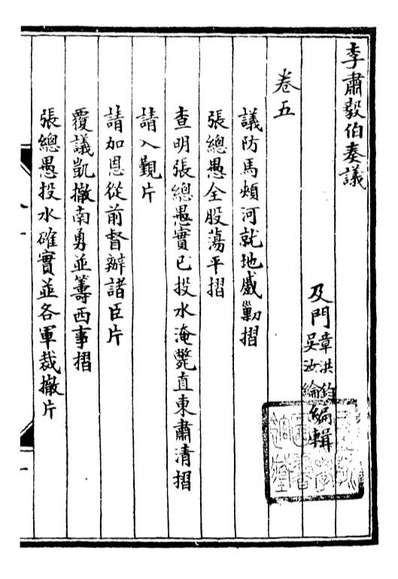 李肅毅伯奏議
及門章洪鈞吳汝綸編輯
卷五
議防馬頰河就地感勦摺
張總愚全股蕩平摺
查明張總愚實已投水淹斃直東肅清摺
請入覲片
請加恩從前督辦諸臣片
覆議凱撤南勇並籌西事摺
張總愚投水確實並各軍裁撤片